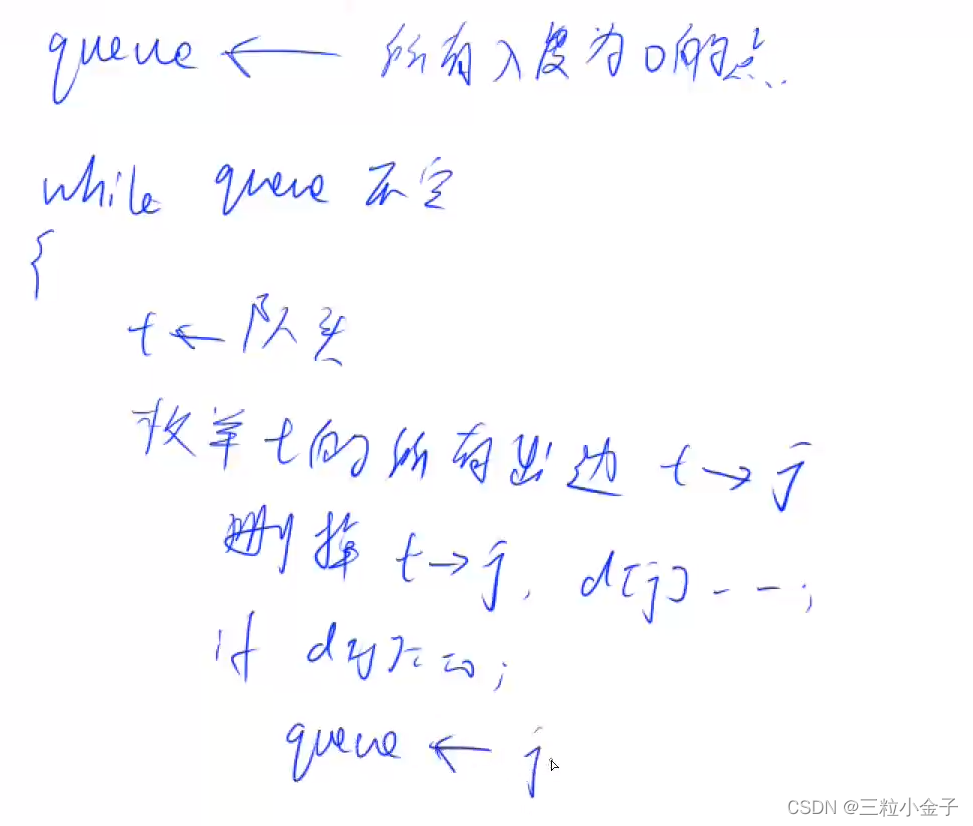 queue ← 所有入度为0的点
while queue 不空
{
t ← 队头
枚举 t 的所有出边 t → j
删掉 t → j, d[j]--;
if d[j]==0;
queue ← j
CSDN @三粒小金子